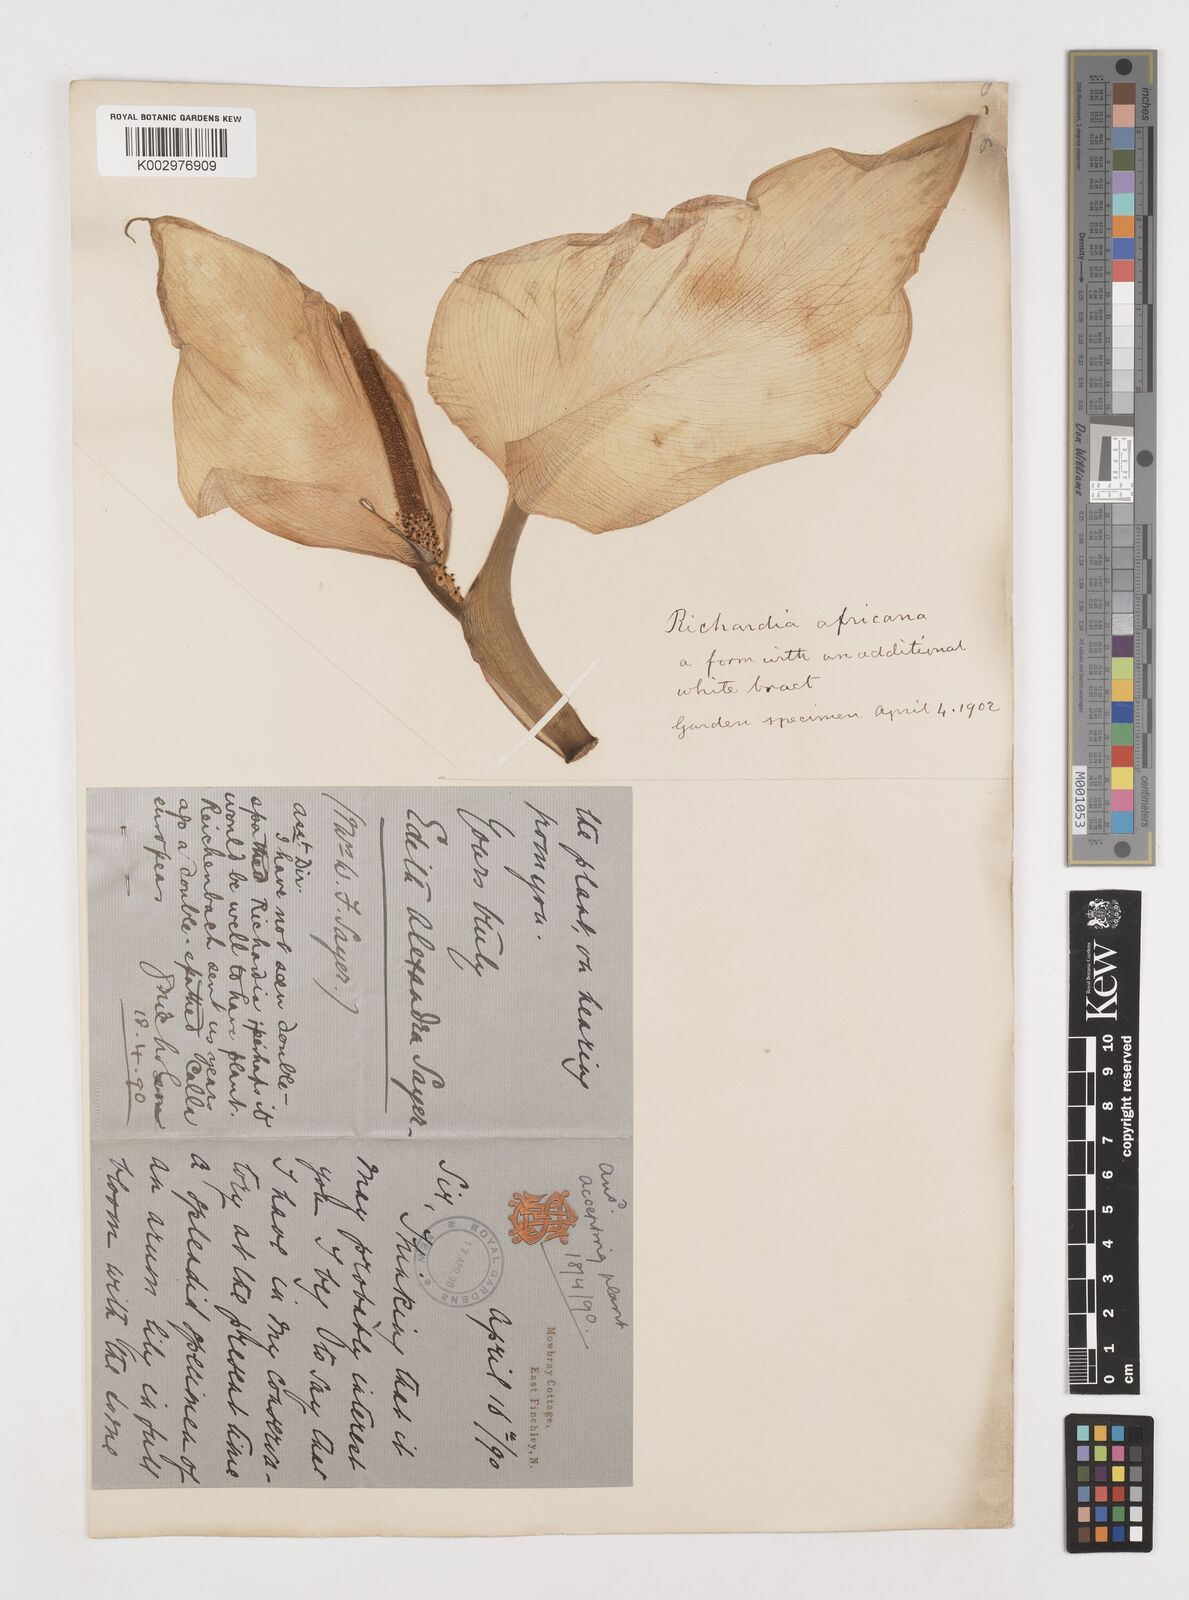 ROYAL BOTANIC GARDENS KEW
K002976909
Richardia africana
a form with an additional
white bract
Garden specimen April 4. 1902
the plant, on hearing
from you.
Yours truly
Edith Alexandra Sayer-
(Mrs W. F. Sayer.)
asst Dir.
I have not seen double-
spathed Richardia perhaps it
would be well to have plant.
Reichenbach sent us years
ago a double-spathed Calla
europeas
18.4.90
ansd.
accepting plant
18/4/90.
Mowbray Cottage,
East Finchley, N.
April 16th/90
ROYAL GARDENS KEW
17 APR. 90
Sir,
Thinking that it
may probably interest
you I beg to say that
I have in my conserva-
tory at the present time
a splendid specimen of
an arum lily in full
bloom with the cone
inches
centimeters
Density
Don Williams
M001053
Royal Botanic Gardens
Kew
0 1 2 3 4 5 6 7 8 9 10
cm
copyright reserved